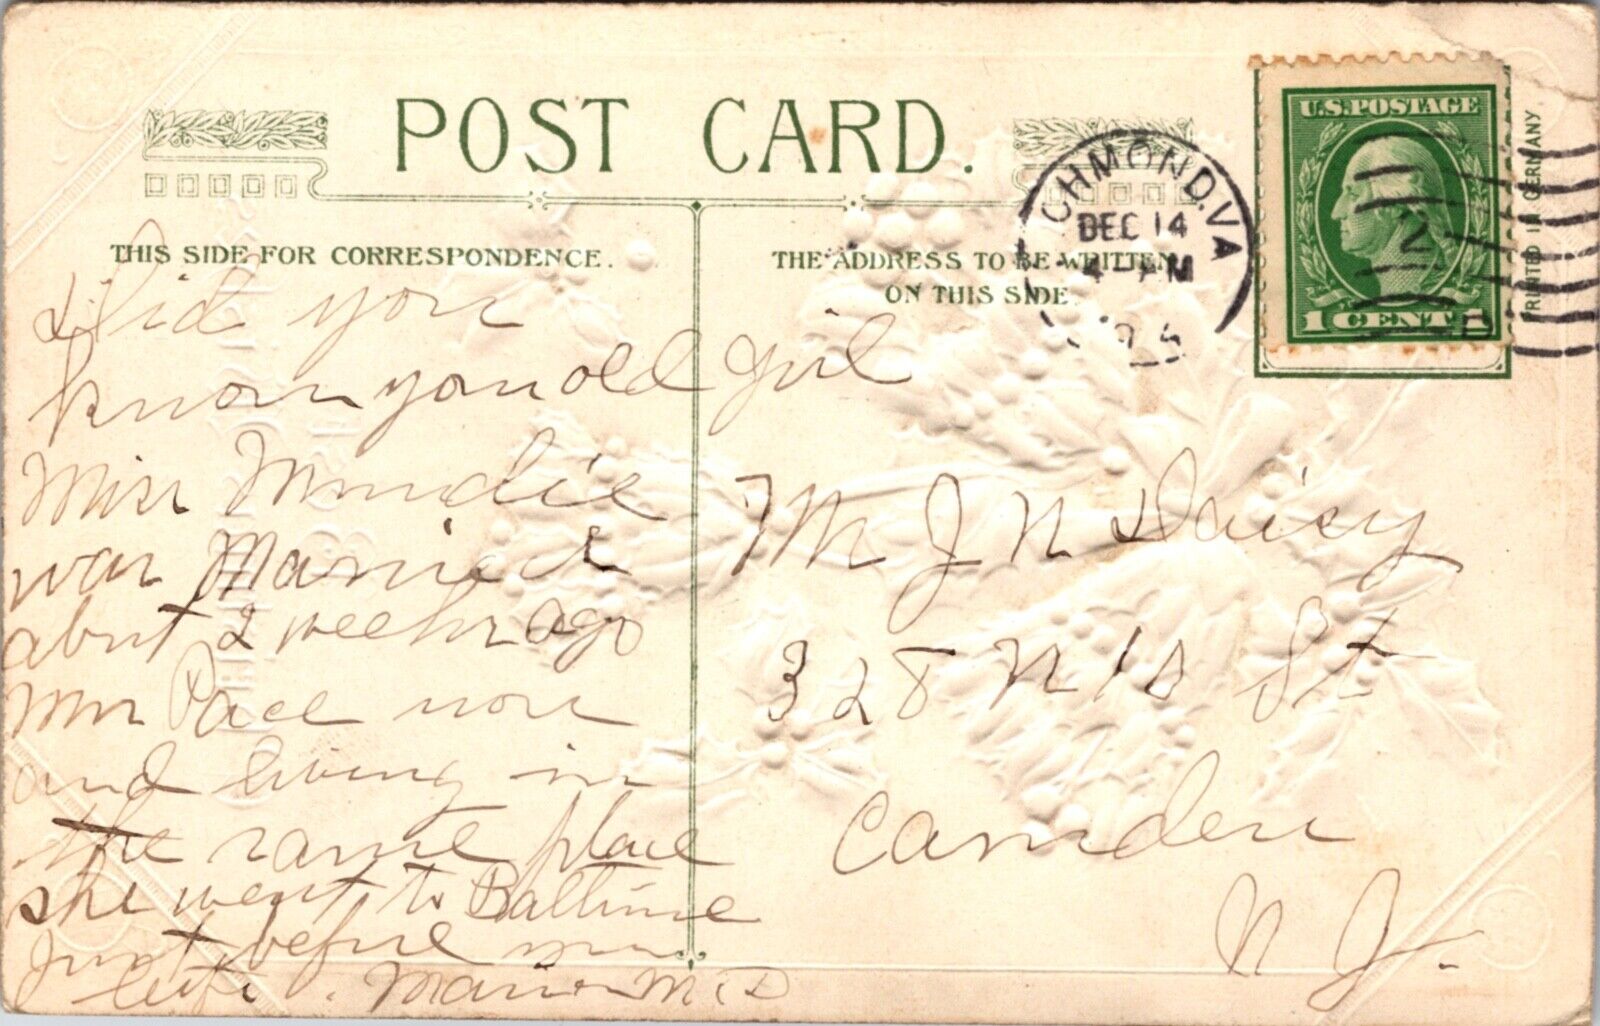 POST CARD.
THIS SIDE FOR CORRESPONDENCE.
THE ADDRESS TO BE WRITTEN
ON THIS SIDE.
CHMOND, VA
DEC 14
U.S. POSTAGE
1 CENT 1
PRINTED IN GERMANY
Did you
know you old girl
Miss Mundie
was Married
about 2 weeks ago
Mrs Pace now
and living in
the same place
she went to Baltimore
Just before
Mr J N Daisy
328 N 10 St
Camden
N J.